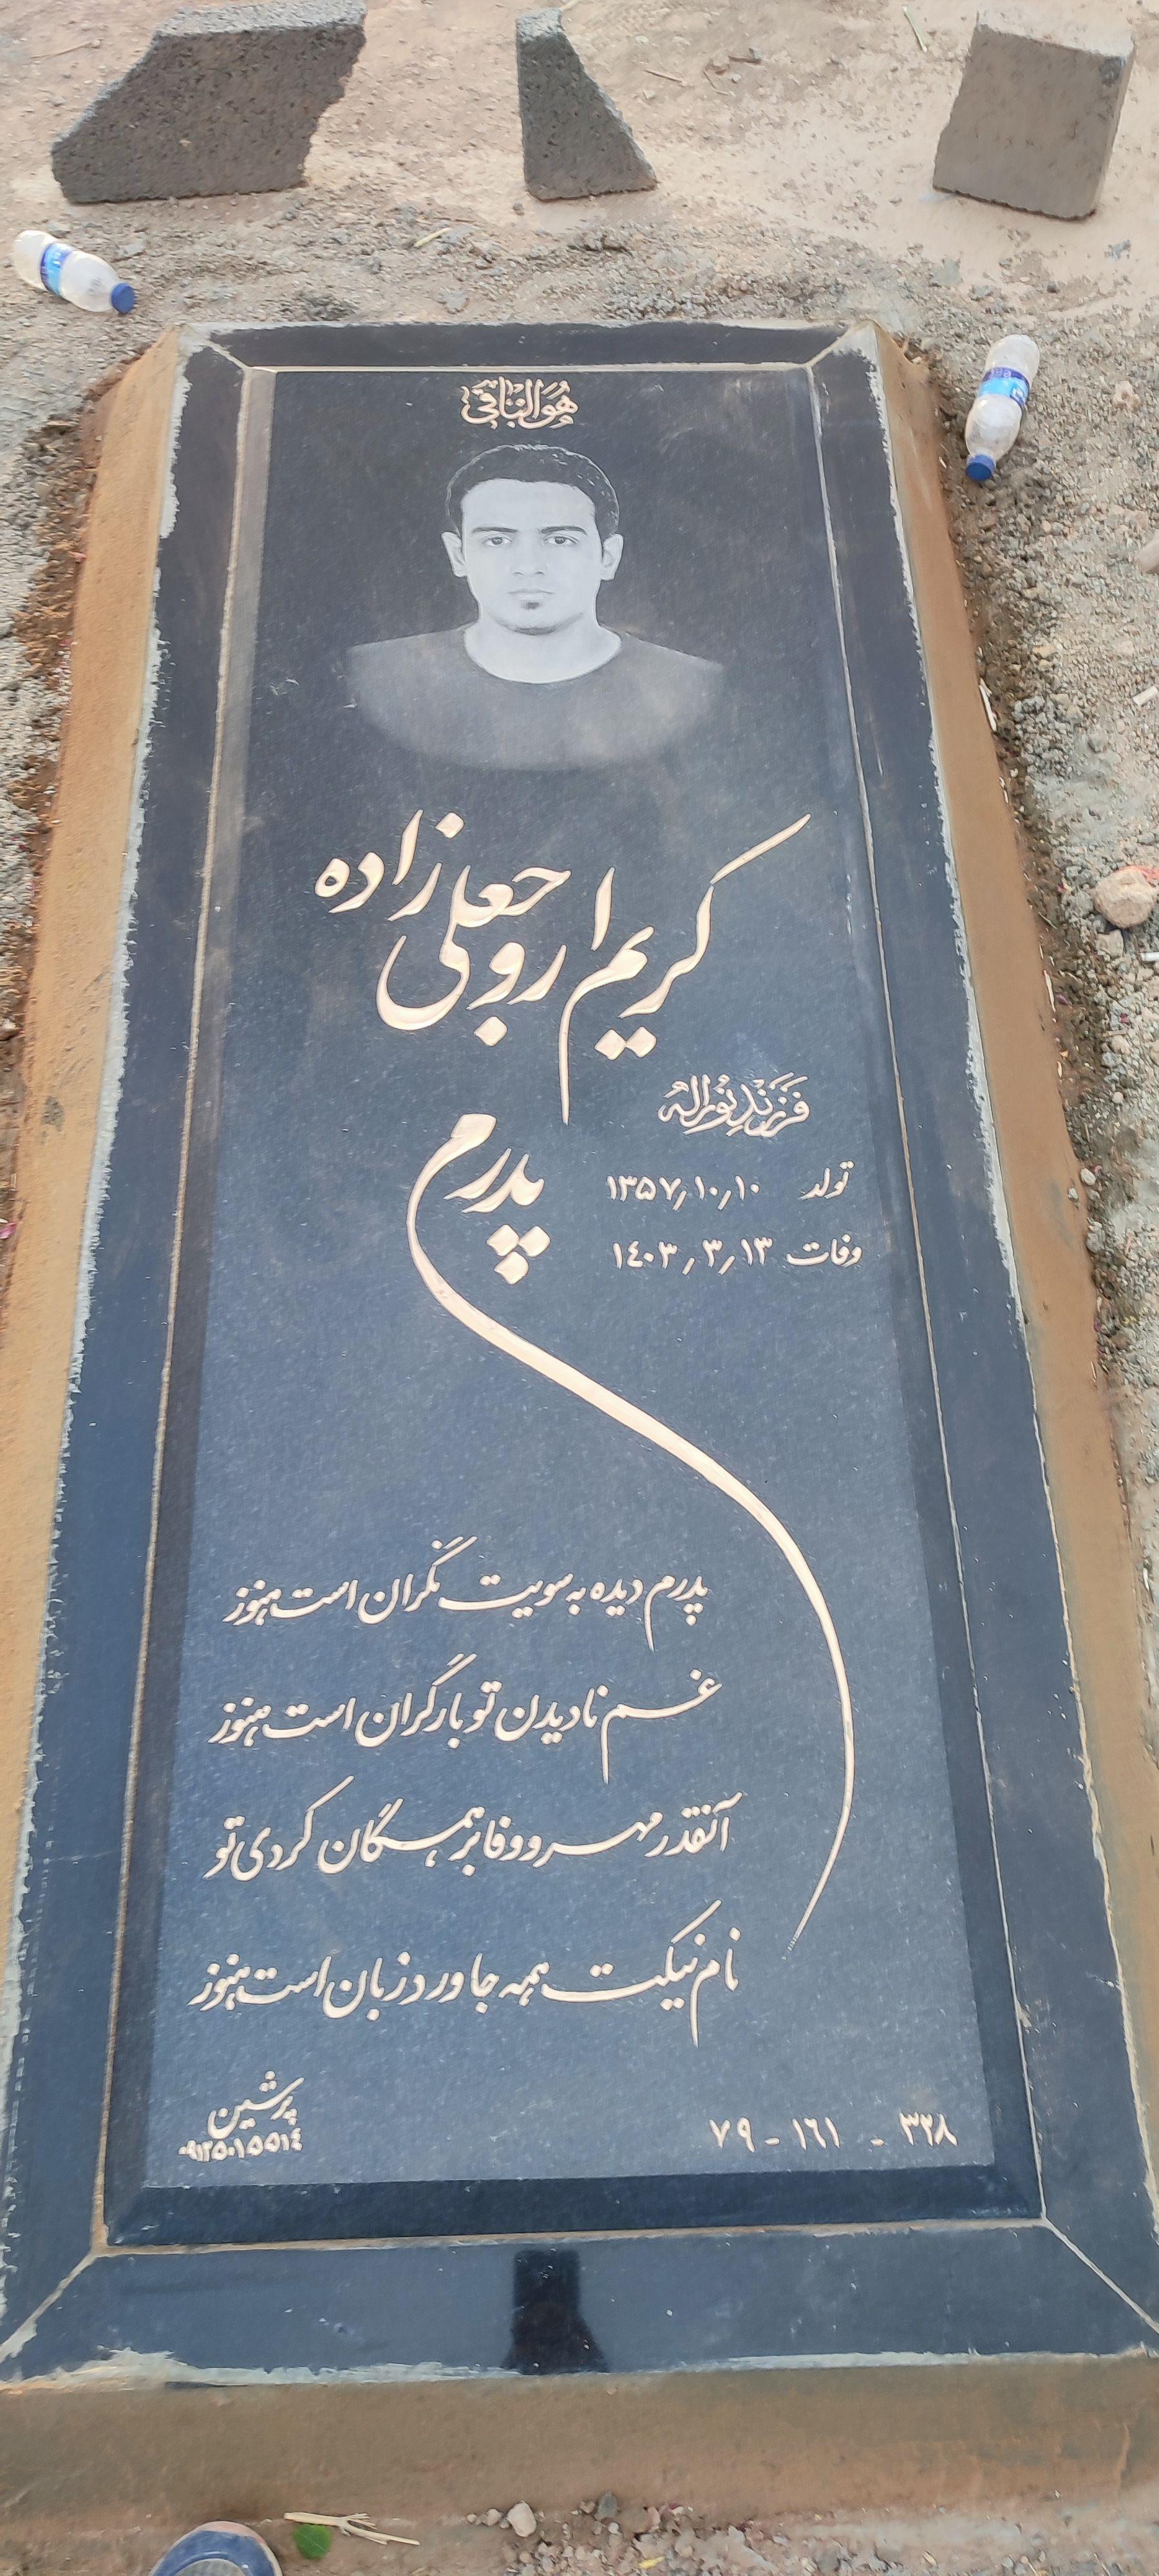 هُوَ الْبَاقِی
کریم اروجعلی زاده
فرزند نوراله
تولد ۱۳۵۷/۱۰/۱۰
وفات ۱۴۰۳/۳/۱۳
پدرم
پدرم دیده به سویت نگران است هنوز
غم نادیدن تو بار گران است هنوز
آنقدر مهر و وفا بر همگان کردی تو
نام نیکت همه جا ورد زبان است هنوز
۳۲۸ - ۱۶۱ - ۷۹
پرشین
۰۹۱۲۵۰۱۵۵۱۴